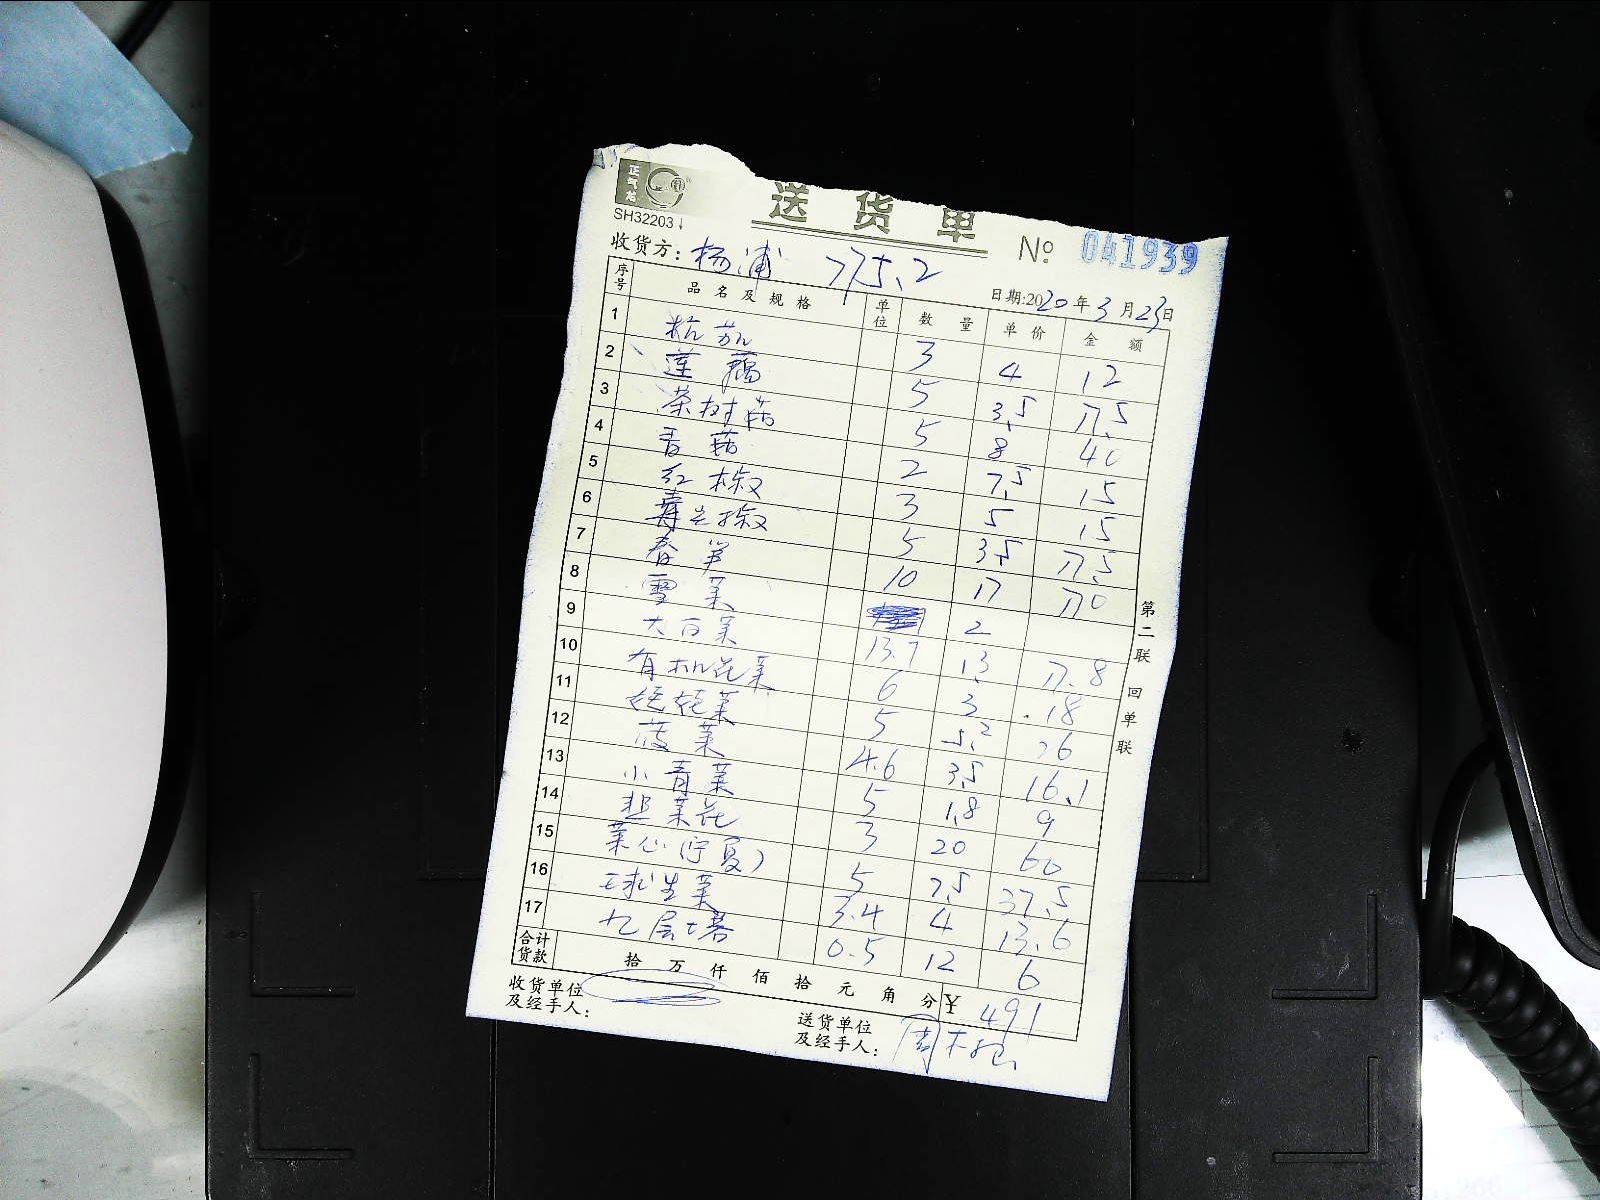 正气龙
送货单
SH32203
№ 041939
收货方: 杨浦 775.2
日期:2020年3月23日
序号 品名及规格 单位 数量 单价 金额
1 杭茄 3 4 12
2 莲藕 5 3.5 17.5
3 茶树菇 5 8 40
4 香菇 2 7.5 15
5 红椒 3 5 15
6 青尖椒 5 3.5 17.5
7 春笋 10 17 170
8 雪菜 2
9 大白菜 13.7 1.3 17.8
10 有机花菜 6 3 18
11 娃娃菜 5 5.2 26
12 菠菜 4.6 3.5 16.1
13 小青菜 5 1.8 9
14 韭菜花 3 20 60
15 菜心(宁夏) 5 7.5 37.5
16 球生菜 3.4 4 13.6
17 九层塔 0.5 12 6
合计货款 拾万仟佰拾元角分 ¥ 491
收货单位及经手人:
送货单位及经手人: 周
第二联 回单联